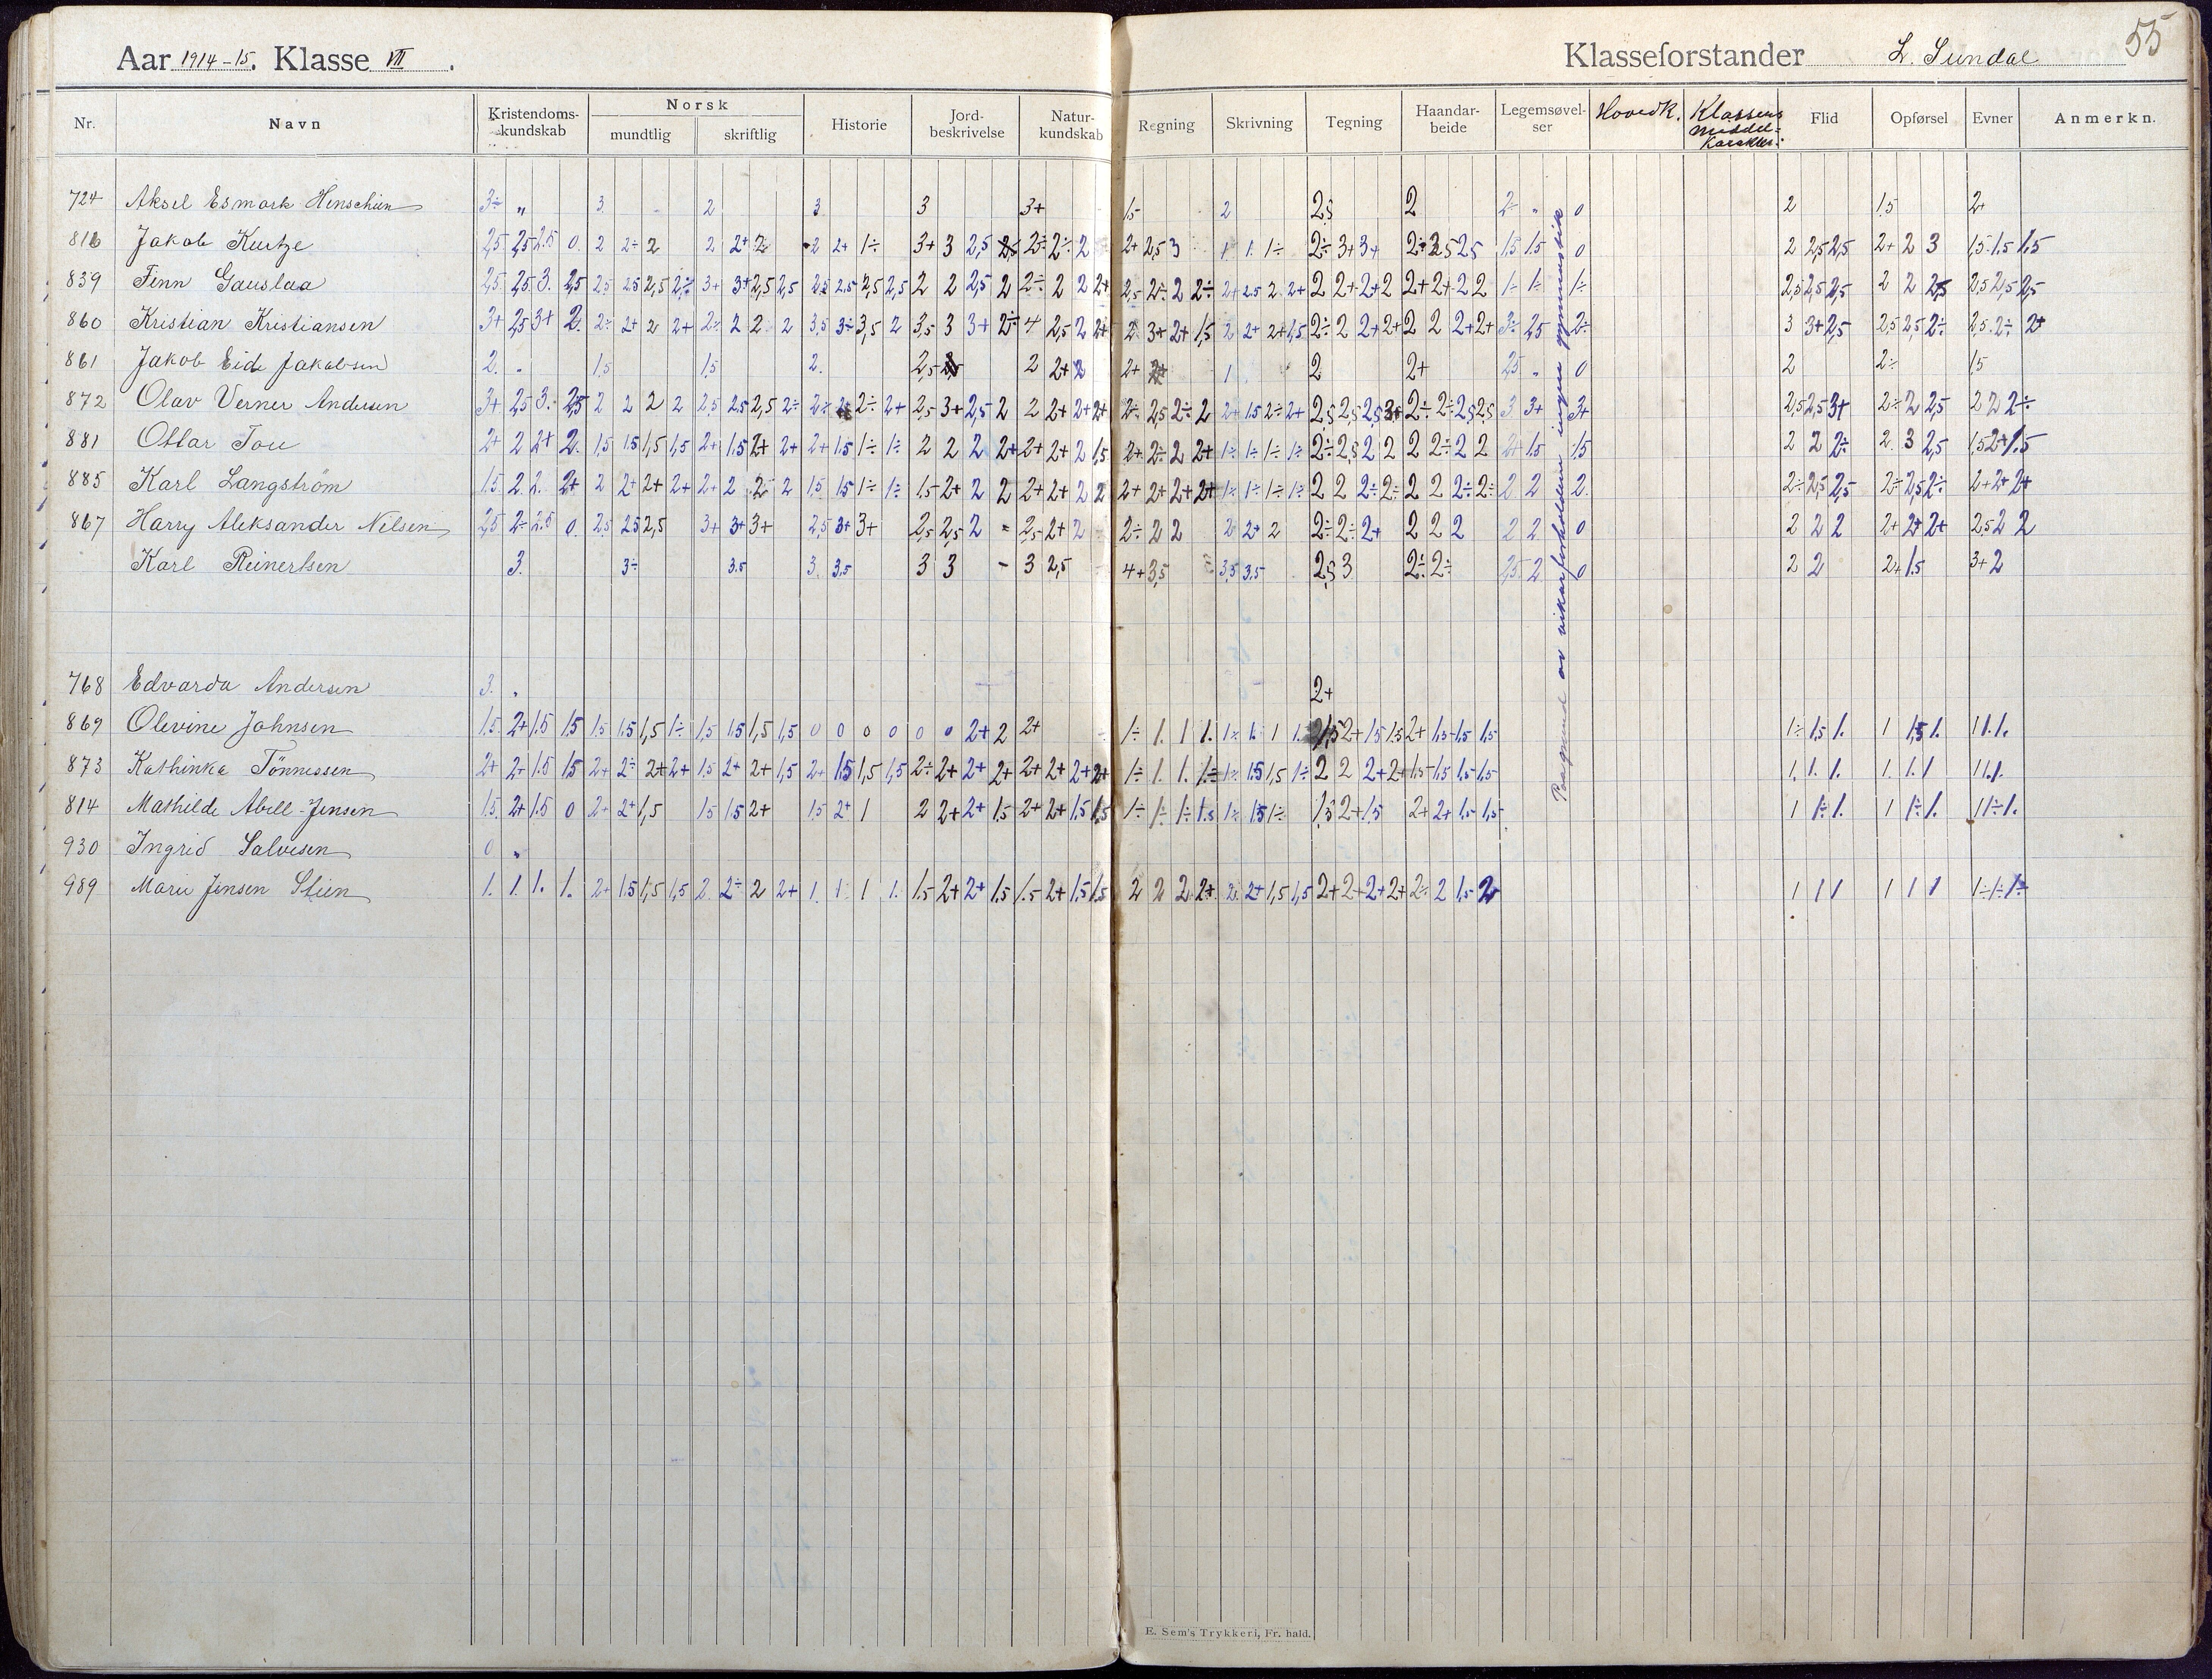 55
Aar 1914-15. Klasse VII. Klasseforstander L. Sundal
Nr. Navn Kristendoms-kundskab Norsk mundtlig skriftlig Historie Jord-beskrivelse Natur-kundskab Regning Skrivning Tegning Haandar-beide Legemsøvel-ser Hovedk. Klassens middel-karakter: Flid Opførsel Evner Anmerkn.
724 Aksel Esmark Henschien 3÷ „ 3. 2 3 3 3+ 1,5 2 2,5 2 2÷ „ 0 2 1,5 2+
816 Jakob Kurtze 2,5 2,5 2.5 0. 2 2÷ 2 2 2+ 2 2 2+ 1÷ 3+ 3 2,5 2÷ 2÷ 2 2+ 2,5 3 1 1. 1÷ 2÷ 3+ 3+ 1,5 1,5 0 2 2,5 2,5 2+ 2 3 1,5 1.5 1.5
839 Finn Gauslaa 2,5 2,5 3. 2,5 2,5 2,5 2,5 2÷ 3+ 3+ 2,5 2,5 2,5 2.5 2,5 2,5 2 2 2,5 2 2÷ 2 2 2+ 2,5 2÷ 2 2÷ 2+ 2,5 2 2+ 2 2+ 2+ 2 2+ 2+ 2 2 1÷ 1÷ 1÷ 2,5 2,5 2,5 2 2 2,5 2,5 2,5 2,5
860 Kristian Kristiansen 3+ 2,5 3+ 2. 2÷ 2+ 2 2+ 2÷ 2 2 2 3,5 3÷ 3,5 2 3,5 3 3+ 2÷ 4 2,5 2 2+ 2 3+ 2+ 1,5 2 2+ 2+ 1,5 2÷ 2 2+ 2+ 2 2 2+ 2+ 3÷ 2,5 2÷ 3 3+ 2,5 2,5 2,5 2÷ 2,5 2÷ 2+
861 Jakob Eide Jakobsen 2. „ 1,5 1,5 2. 2,5 2 2+ 2 2+ 1 2 2+ 2,5 „ 0 2 2÷ 1,5
872 Olav Verner Andersen 3+ 2,5 3. 2,5 2 2 2 2 2,5 2,5 2,5 2÷ 2÷ 2÷ 2+ 2,5 3+ 2,5 2 2 2+ 2+ 2+ 2÷ 2,5 2÷ 2 2+ 1,5 2÷ 2+ 2,5 2,5 2,5 3+ 2÷ 2÷ 2,5 2,5 3 3+ 3+ 2,5 2,5 3+ 2÷ 2 2,5 2 2 2÷
881 Ottar Tou 2+ 2 2+ 2. 1,5 1,5 1,5 1,5 2+ 1,5 2+ 2+ 2+ 1,5 1÷ 1÷ 2 2 2 2+ 2+ 2+ 2 1,5 2+ 2÷ 2 2+ 1÷ 1÷ 1÷ 1÷ 2÷ 2,5 2 2 2 2÷ 2 2 2+ 1,5 1,5 2 2 2÷ 2. 3 2,5 1,5 2+ 1.5
885 Karl Langström 1,5 2. 2. 2+ 2 2+ 2+ 2+ 2+ 2 2 2 1,5 1,5 1÷ 1÷ 1,5 2+ 2 2 2+ 2+ 2 2 2+ 2+ 2+ 2+ 1÷ 1÷ 1÷ 1÷ 2 2 2÷ 2÷ 2 2 2÷ 2÷ 2 2 2. 2÷ 2,5 2,5 2÷ 2,5 2÷ 2+ 2+ 2+
867 Harry Aleksander Nilsen 2,5 2÷ 2.5 0. 2,5 2,5 2,5 3+ 3+ 3+ 2,5 3+ 3+ 2,5 2,5 2 2,5 2+ 2 2÷ 2 2 2 2+ 2 2÷ 2÷ 2+ 2 2 2 2 2 0 2 2 2 2+ 2+ 2+ 2,5 2 2
Karl Reinertsen 3. 3÷ 3.5 3. 3,5 3 3 - 3 2,5 4+ 3,5 3,5 3,5 2,5 3 2÷ 2÷ 2,5 2 0 2 2 2+ 1.5 3+ 2
768 Edvarda Andersen 3. „ 2+
869 Olevine Johnsen 1.5 2+ 1.5 1.5 1,5 1.5 1,5 1÷ 1,5 1.5 1,5 1,5 0 0 0 0 0 0 2+ 2 2+ 1÷ 1. 1 1. 1÷ 1. 1 1. 2+ 1,5 1,5 2+ 1,5 1,5 1,5 1÷ 1,5 1. 1 1,5 1. 1 1. 1.
873 Kathinka Tönnessen 2+ 2+ 1.5 1.5 2+ 2÷ 2+ 2+ 1,5 2+ 2+ 1,5 2+ 1.5 1,5 1,5 2÷ 2+ 2+ 2+ 2+ 2+ 2+ 2+ 1÷ 1. 1. 1÷ 1÷ 1.5 1,5 1÷ 2 2 2+ 2+ 1,5 1,5 1,5 1,5 1. 1. 1. 1. 1. 1 1 1. 1.
814 Mathilde Abell-Jensen 1.5. 2+ 1.5 0 2+ 2+ 1,5 1.5 1.5 2+ 1,5 2+ 1 2 2+ 2+ 1.5 2+ 2+ 1.5 1.5 1÷ 1÷ 1÷ 1.5 1÷ 1.5 1÷ 1,5 2+ 1,5 2+ 2+ 1,5 1,5 1 1÷ 1. 1 1÷ 1. 1 1÷ 1.
930 Ingrid Salvesen 0 „
989 Marie Jensen Stien 1. 1. 1. 1. 2+ 1.5 1,5 1,5 2 2÷ 2 2+ 1. 1. 1 1. 1.5 2+ 2+ 1.5 1.5 2+ 1.5 1.5 2 2 2 2+ 2. 2+ 1,5 1,5 2+ 2+ 2+ 2+ 2÷ 2 1,5 2 1 1 1 1 1 1 1÷ 1÷ 1÷
Paagrund av vikarforholdene ingen gymnastik
E. Sem's Trykkeri, Fr. hald.